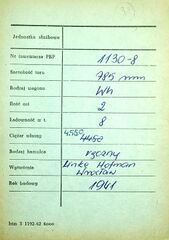 Jednostka służbowa
Nr inwentarza PKP 1130-8
Szerokość toru 785 mm
Rodzaj wagonu Wh
Ilość osi 2
Ładowność w t. 8
Ciężar własny 4.550 4450
Rodzaj hamulca ręczny
Wytwórnia Linke Hofman Wrocław
Rok budowy 1941